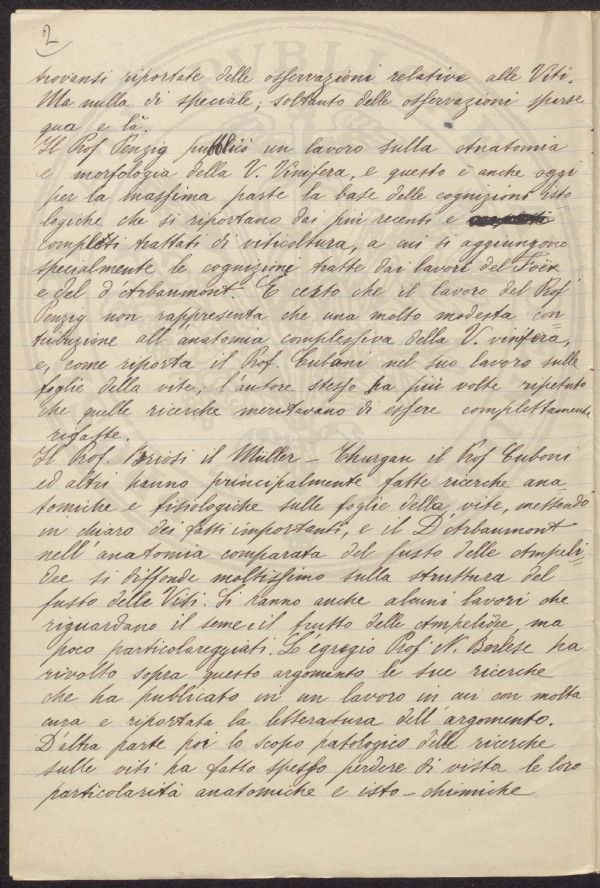 2
trovansi riportate delle osservazioni relative alle Viti.
Ma nulla di speciale; soltanto delle osservazioni sparse
qua e là.
Il Prof Penzig pubblicò un lavoro sulla Anatomia
e morfologia della V. Vinifera, e questo è anche oggi
per la massima parte la base delle cognizioni isto-
logiche che si riportano dai più recenti e
completi trattati di viticoltura, a cui si aggiungono
specialmente le cognizioni tratte dai lavori del Foëx
e del d'Arbaumont. È certo che il lavoro del Prof
Penzig non rappresenta che una molto modesta con=
tribuzione all'anatomia complessiva della V. vinifera,
e, come riporta il Prof. Cuboni nel suo lavoro sulle
foglie della vite, l'autore stesso ha più volte ripetuto
che quelle ricerche meritavano di essere complettamente
rifatte.
Il Prof. Briosi il Müller - Thurgau il Prof Cuboni
ed altri hanno principalmente fatte ricerche ana
tomiche e fisiologiche sulle foglie della vite, mettendo
in chiaro dei fatti importanti, e il D'Arbaumont
nell'anatomia comparata del fusto delle Ampeli=
dee si diffonde moltissimo sulla struttura del
fusto delle Viti. Si hanno anche alcuni lavori che
riguardano il seme e il frutto delle Ampelidee, ma
poco particolareggiati. L'egregio Prof N. Berlese ha
rivolto sopra questo argomento le sue ricerche
che ha publicato in un lavoro in cui con molta
cura è riportata la letteratura dell'argomento.
D'altra parte poi lo scopo patologico delle ricerche
sulle viti ha fatto spesso perdere di vista le loro
particolarità anatomiche e isto-chimiche
PUBLIC